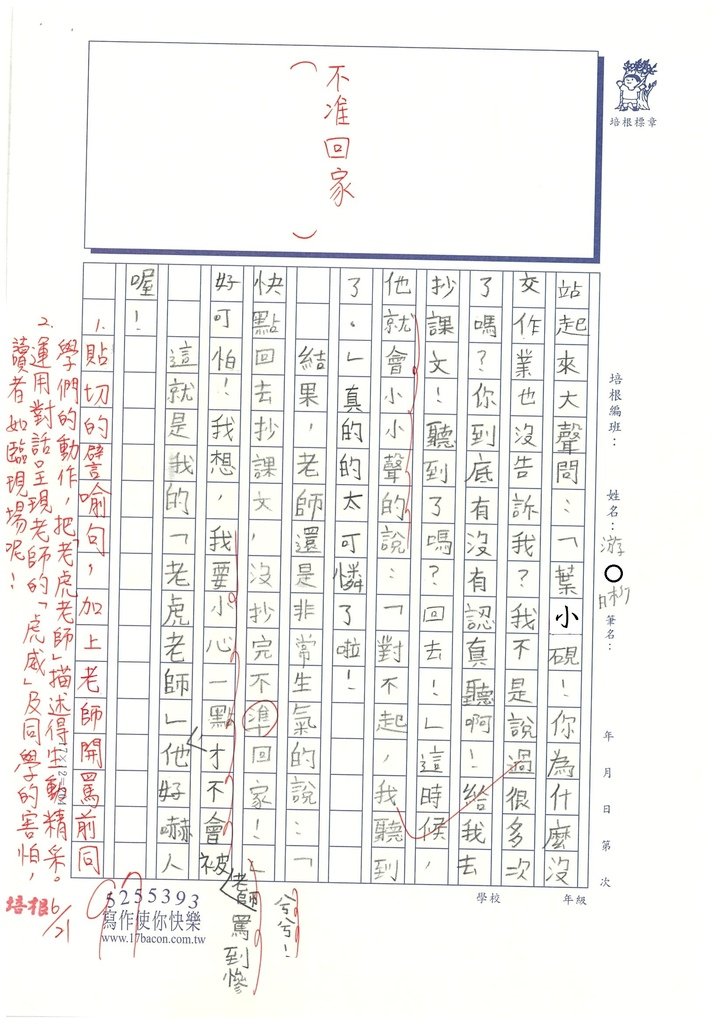 不准回家
（ ）
培根標章
培根編班：
姓名：游○彬
筆名：
年 月 日 第 次
站起來大聲問：「葉小硯！你為什麼沒
交作業也沒告訴我？我不是說過很多次
了嗎？你到底有沒有認真聽啊！給我去
抄課文！聽到了嗎？回去！」這時候，
他就會小小聲的說：「對不起，我聽到
了。」真的的太可憐了啦！
結果，老師還是非常生氣的說：「
快點回去抄課文，沒抄完不準回家！」
好可怕！我想，我要小心一點才不會被
老師罵到慘
兮兮！
這就是我的「老虎老師」他好嚇人
喔！
1.貼切的譬喻句，加上老師開罵前同
學們的動作，把「老虎老師」描述得生動精采。
2.運用對話呈現老師的「虎威」及同學的害怕，
讀者如臨現場呢！
學校
年級
5255393
寫作使你快樂
www.17bacon.com.tw
培根
6/21